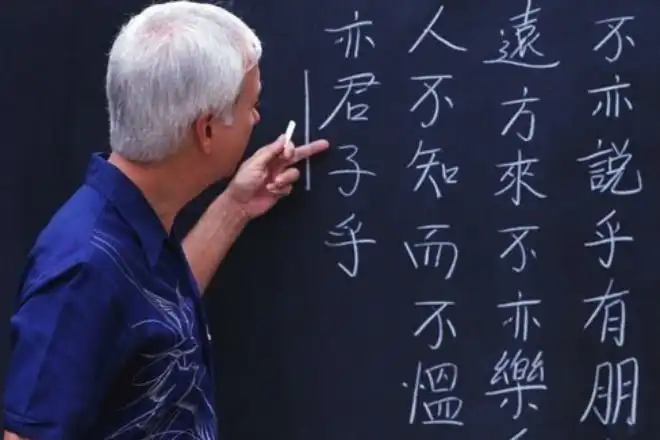 不亦說乎有朋
遠方來不亦樂
人不知而不慍
亦君子乎